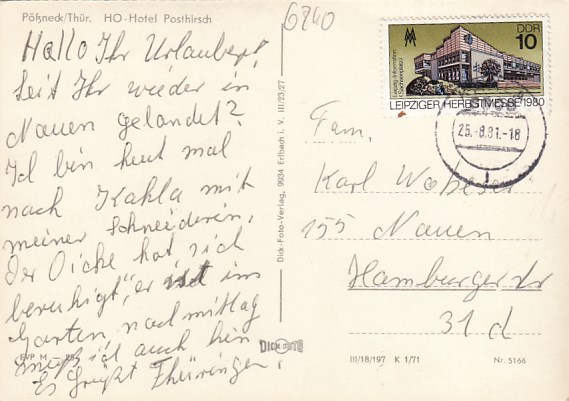 Pößneck/Thür. HO-Hotel Posthirsch
6840
Hallo Ihr Urlauber!
Seit Ihr wieder in
Nauen gelandet?
Ich bin heut mal
nach Kahla mit
meiner Schneiderin,
der Dicke hat sich
beruhigt, er ist im
Garten, nachmittag
muß ich auch hin
Es grüßt Thüringen.
EVP M
Dick-Foto-Verlag, 9934 Erlbach i. V. III/23/27
DICK FOTO
DDR
10
Leipzig-Information
(Sachsenplatz)
LEIPZIGER HERBSTMESSE 1980
25.-8.81.-18
Fam.
Karl
155 Nauen
Hamburger Str
31 d
III/18/197 K 1/71
Nr. 5166